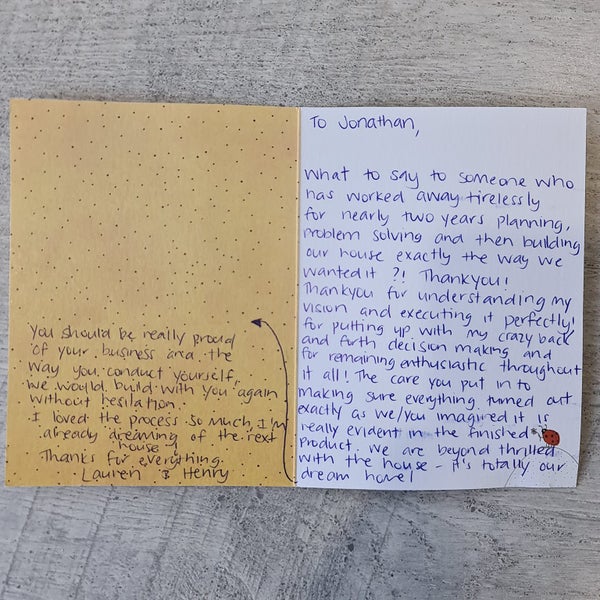 To Jonathan,
What to say to someone who
has worked away tirelessly
for nearly two years planning,
problem solving and then building
our house exactly the way we
wanted it ?! Thankyou!
Thankyou for understanding my
vision and executing it perfectly!
for putting up with my crazy back
and forth decision making and
for remaining enthusiastic throughout
it all! The care you put in to
making sure everything turned out
exactly as we/you imagined it is
really evident in the finished
product. We are beyond thrilled
with the house - it's totally our
dream home!
You should be really proud
of your business and the
way you conduct yourself,
we would build with you again
without hesitation.
I loved the process so much, I'm
already dreaming of the next
house!
Thanks for everything.
Lauren & Henry